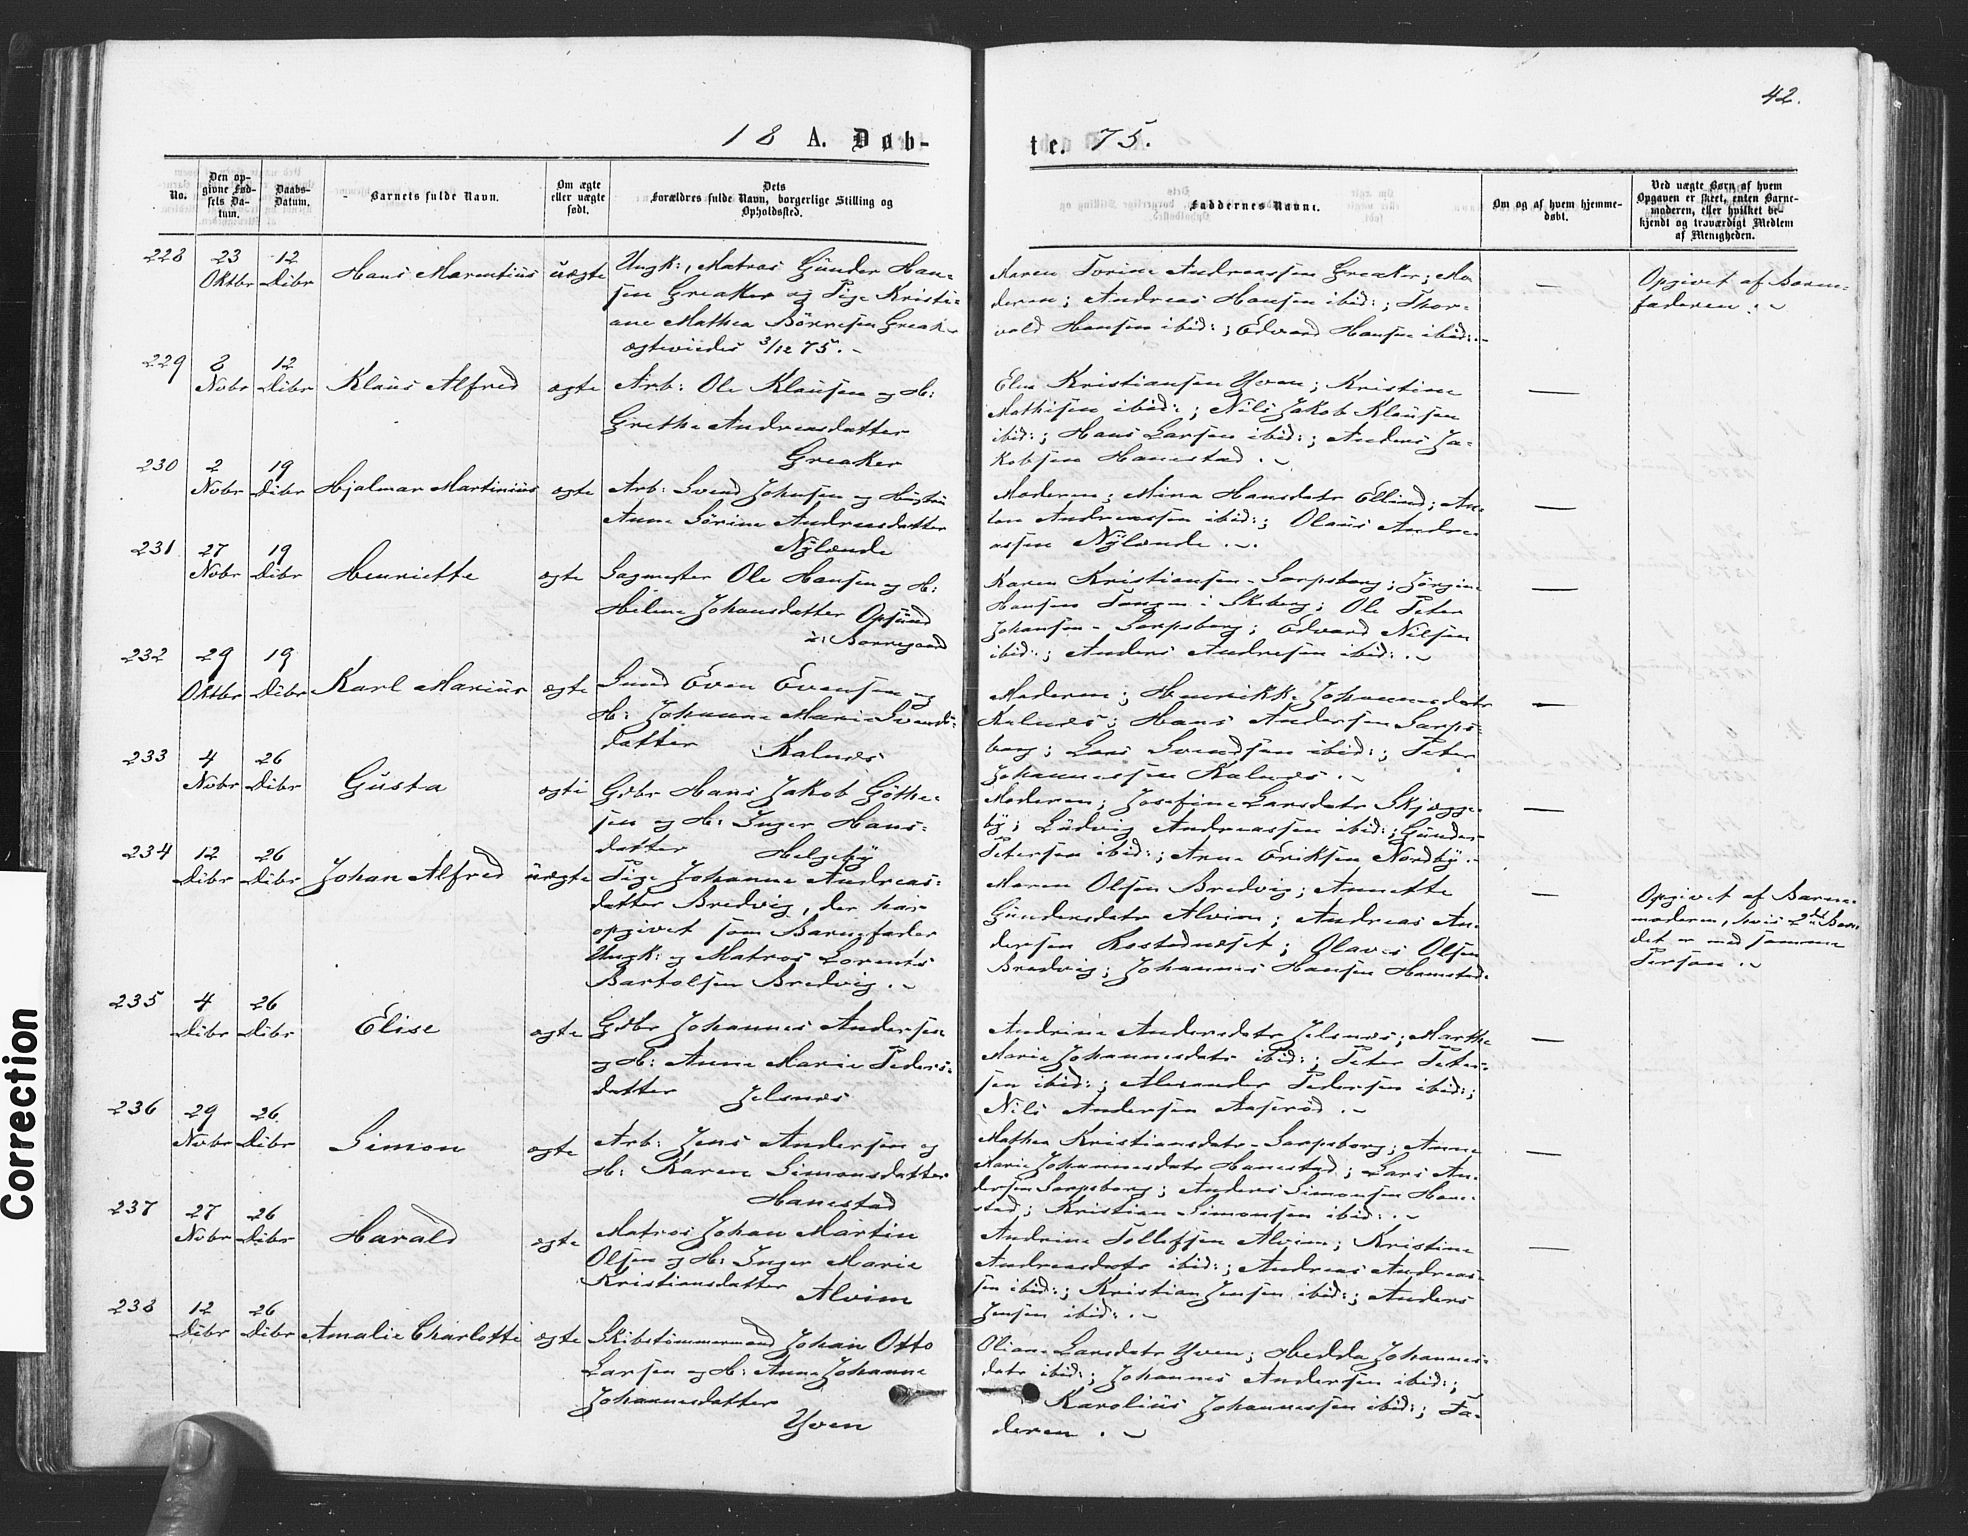 42.
18 A. Døb-
te. 75.
No.
Den op-
givne Fød-
sels Da-
tum.
Daabs-
Datum.
Barnets fulde Navn.
Om ægte
eller uægte
født.
Dets
Forældres fulde Navn, borgerlige Stilling og
Opholdssted.
Faddernes Navne.
Om og af hvem hjemme-
døbt.
Ved uægte Børn af hvem
Opgaven er skeet, enten Barne-
moderen, eller hvilket be-
kjendt og troværdigt Medlem
af Menigheden.
228 23 12
Oktbr Dibr Hans Marentius uægte
Ungk:, Matros Günder Han-
sen Greaker og Pige Kristi-
ane Mathea Börresen Greaker
ægteviedes 3/12 75.
Maren Torine Andreassen Greaker; Mo
deren; Andreas Hansen ibid:; Thor-
vald Hansen ibid:; Edvard Hansen ibid:
—
Opgivet af Barne-
faderen.
229 8 12
Nobr Dibr Klaus Alfred ægte
Arb: Ole Klausen og H:
Grethe Andreasdatter
Greaker
Elen Kristiansen Yven; Kristine
Mathisen ibid:; Nils Jakob Klausen
ibid:; Hans Larsen ibid:; Anders Ja-
kobsen Hanestad.
—
230 2 19
Nobr Dibr Hjalmar Martinius ægte
Arb: Svend Johnsen og Hustru
Anne Sörine Andreasdatter
Nylænde
Moderen; Mina Hansdatr Ellind; An-
ton Andreassen ibid:; Olaus Andre-
assen Nylænde.
—
231 27 19
Nobr Dibr Henriette ægte
Sagmester Ole Hansen og H:
Helene Johansdatter Opsund
i: Borregaard
Karen Kristiansen-Sarpsborg; Jörgine
Hansen Tangen i Skeberg; Ole Peter
Johansen-Sarpsborg; Edvard Nilsen
ibid:; Anders Andresen ibid:
—
232 29 19
Oktbr Dibr Karl Marius ægte
Even Evensen og
H: Johanne Marie Svends-
datter Kalnæs
Moderen; Henrikke Johannesdatr
Kalnæs; Hans Andersen Sarps-
borg; Lars Svendsen ibid:; Peter
Johannessen Kalnæs.
—
233 4 26
Nobr Dibr Gusta ægte
Gdbr Hans Jakob Göthe-
sen og H: Inger Hans-
datter Helgeby
Moderen; Josefine Larsdatr Skjægge-
by; Ludvig Andreassen ibid:; Günder
Petersen ibid:; Arne Eriksen Nordby.
—
234 12 26
Dibr Dibr Johan Alfred uægte
Pige Johanne Andreas-
datter Bredvig, der har
opgivet som Barnefader
Ungk: og Matros Lorents
Bartolsen Bredvig.
Maren Olsen Bredvig; Annette
Gundersdatr Alvim; Andreas An-
dersen Rostadnæset; Olaves Olsen
Bredvig; Johannes Hansen Hanestad.
—
Opgivet af Barne-
moderen, hvis 2det Barn
det er med samme
Person.
235 4 26
Dibr Dibr Elise ægte
Gdbr Johannes Andersen
og H: Anne Marie Peders-
datter Jelsnæs
Andrine Andersdatr Jelsnæs; Marthe
Marie Johannesdatr ibid:; Peter Peter-
sen ibid:; Alexander Pedersen ibid:;
Nils Andersen Aaseröd.
—
236 29 26
Nobr Dibr Simon ægte
Arb: Jens Andersen og
H: Karen Simonsdatter
Hanestad
Mathea Kristiansdatr-Sarpsborg; Anne
Marie Johannesdatr Hanestad; Lars An-
dersen Sarpsborg; Anders Simonsen Hane-
stad; Kristian Simonsen ibid:
—
237 27 26
Nobr Dibr Harald ægte
Matros Johan Martin
Olsen og H: Inger Marie
Kristiansdatter Alvim
Andrine Tollefsen Alvim; Kristine
Andreasdatr ibid:; Andreas Andreas-
sen ibid:; Kristian Jensen ibid:; Anders
Jensen ibid:
—
238 12 26
Dibr Dibr Amalie Charlotte ægte
Skibstömmermand Johan Otto
Larsen og H: Anne Johanne
Johannesdatter
Yven
Oliane Larsdatr Yven; Hedda Johannes-
datr ibid:; Johannes Andersen ibid:;
Karolius Johannessen ibid:; Fa-
deren.
Correction